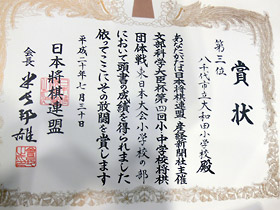 賞状
第三位
八千代市立大和田小学校殿
あなたがたは日本将棋連盟 産経新聞社主催
文部科学大臣杯第四回小・中学校将棋
団体戦東日本大会小学校の部
において頭書の成績を得られました
依ってここにその敢闘を賞します
平成二十年七月三十日
日本将棋連盟
会長 米長邦雄